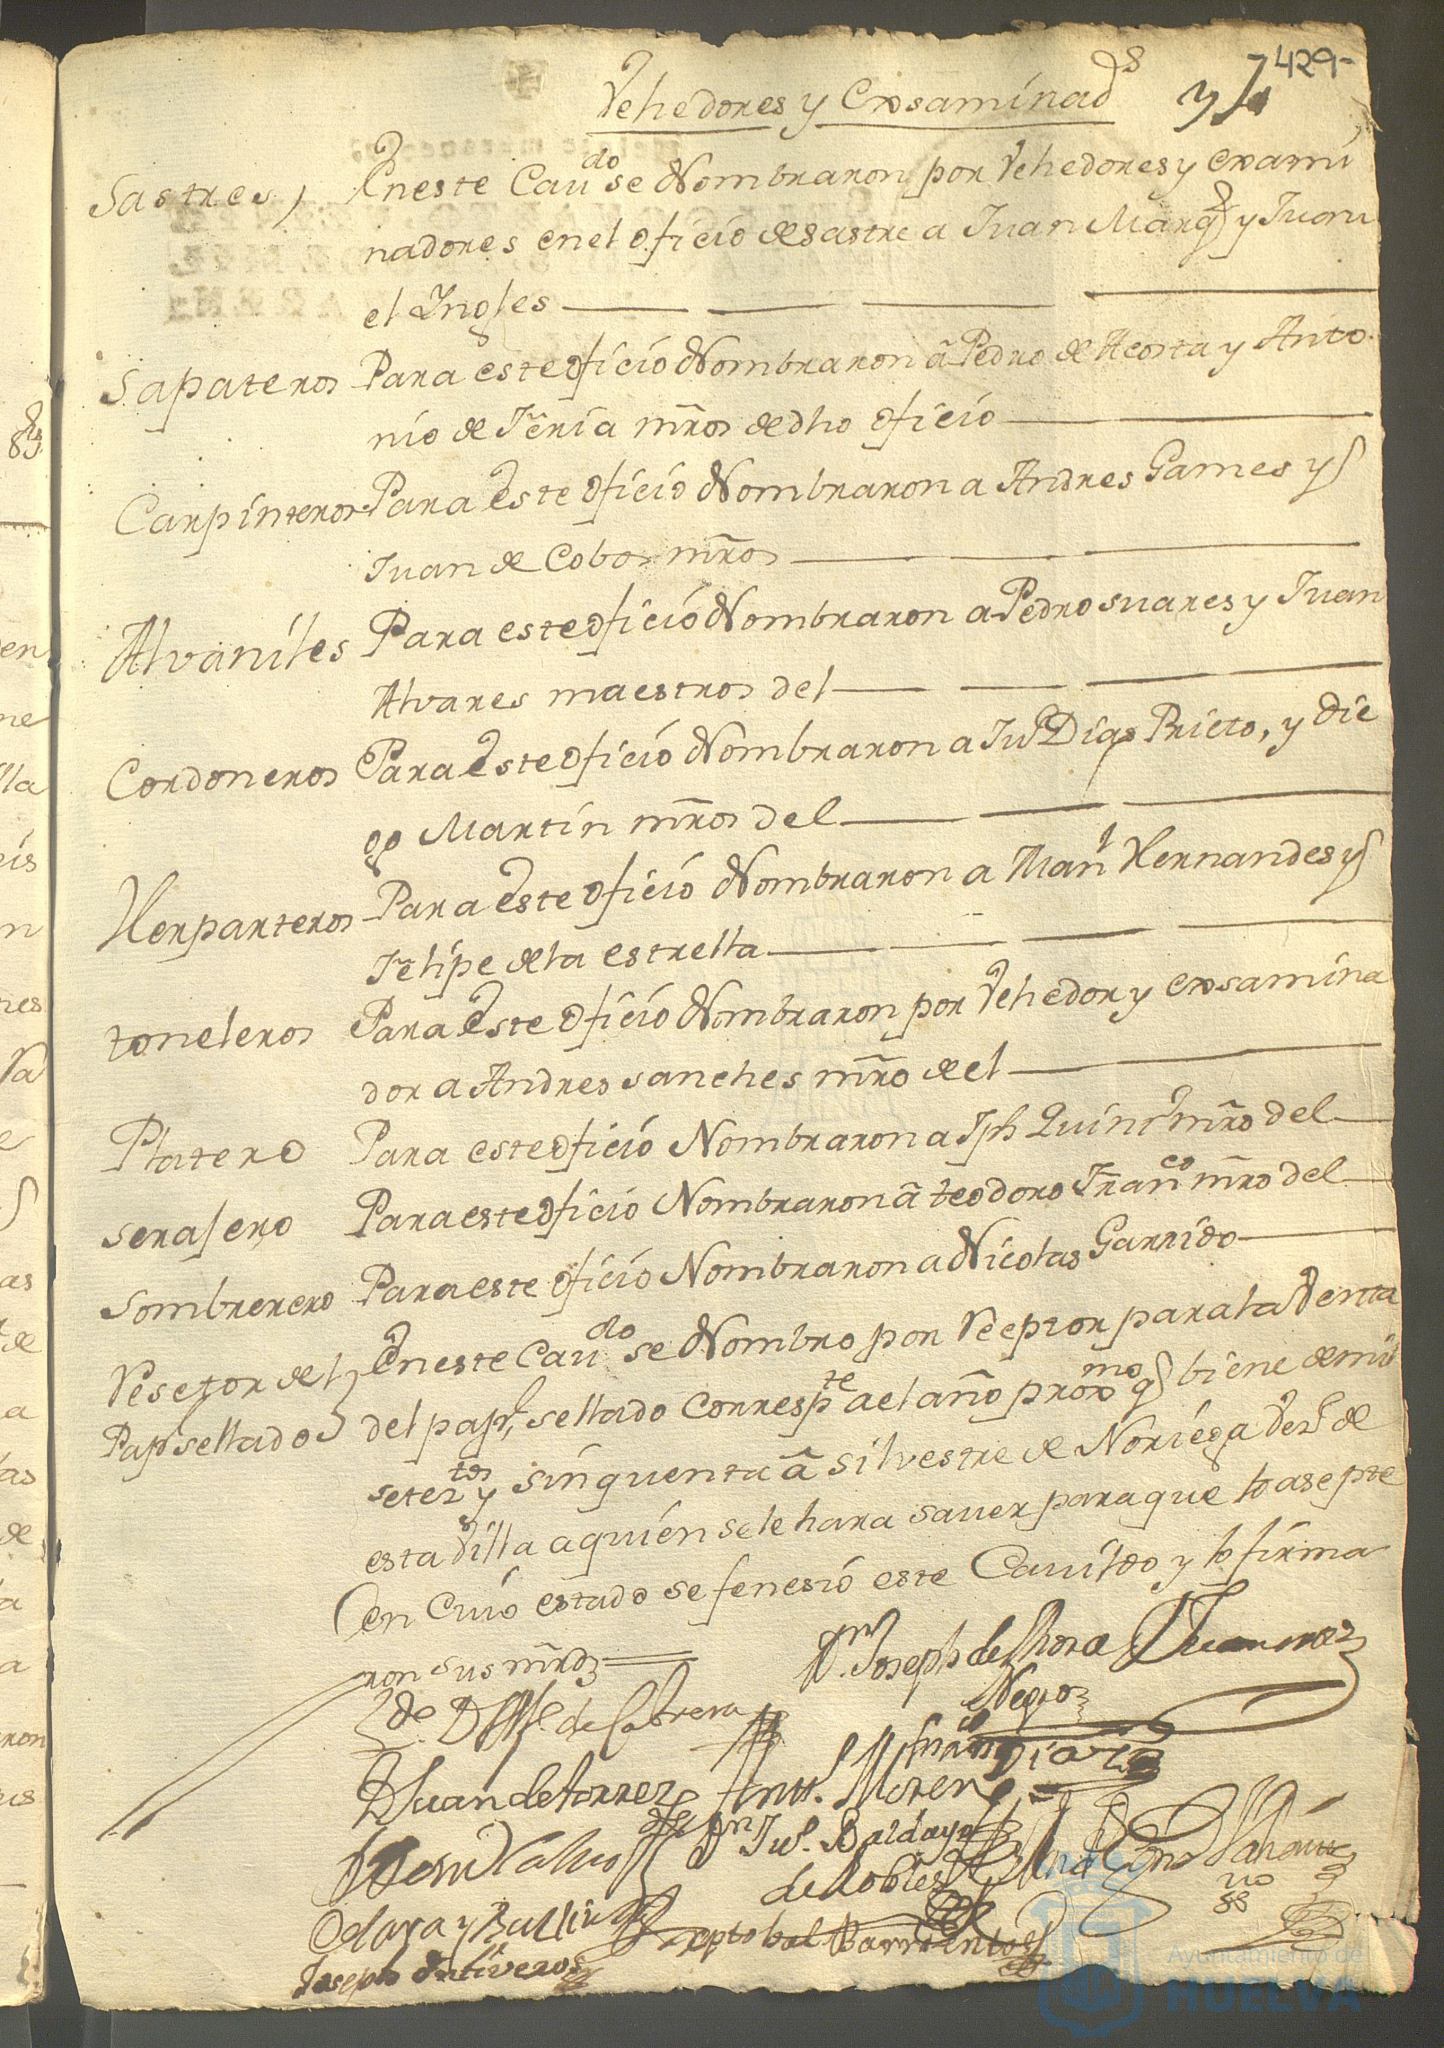 429
Vehedores y Exsaminad.s
Sastres, Eneste Cav.do se Nombraron por Vehedores y exami
nadores en el oficio de Sastre a Juan Marq.z y Juan
el Yngles
Sapateros Para este oficio Nombraron â Pedro de Acosta y Anto
nio de Feria mrõs de dho oficio
Carpinteros Para Este oficio Nombraron a Andres Games y
Juan de Cobos mrõs
Alvaniles Para este oficio Nombraron a Pedro suares y Juan
Alvares maestros del
Cordoneros Para Este oficio Nombraron a Ju.o Dias Prieto, y Die
go Martin mrõs del
Herparteros Para Este oficio Nombraron a Man.l Hernandes y
Felipe de la estrella
toneleros Para Este oficio Nombraron por Vehedor y exsamina
dor a Andres sanches mrõ de el
Platero Para este oficio Nombraron a Jph mrõ del
serajero Para este oficio Nombraron â teodoro Fran.co mrõ del
Sombrerero Para este oficio Nombraron a Nicolas Garrido
Resetor del Eneste Cav.do se Nombro por Reeptor para la Venta
Pap.l sellado del pap.l sellado corresp.te a el año prox.mo q.e biene de mil
setez.tos y sinquenta â silvestre de Noriega Vez.o de
esta Villa a quien se le hara saver para que lo asepte
en Cuio estado se fenesió este Cavildo y lo firma
ron sus mrds
D.n Joseph de Mora
Negro
de Cabrera
D Juan de torres
Ant.o Moreno
Fran.co Diaz
D.n Ju.o Baldayo
de Robles
Olaya y
Xptobal Barrientos
Joseph Ontiveros
Ayuntamiento de
HUELVA